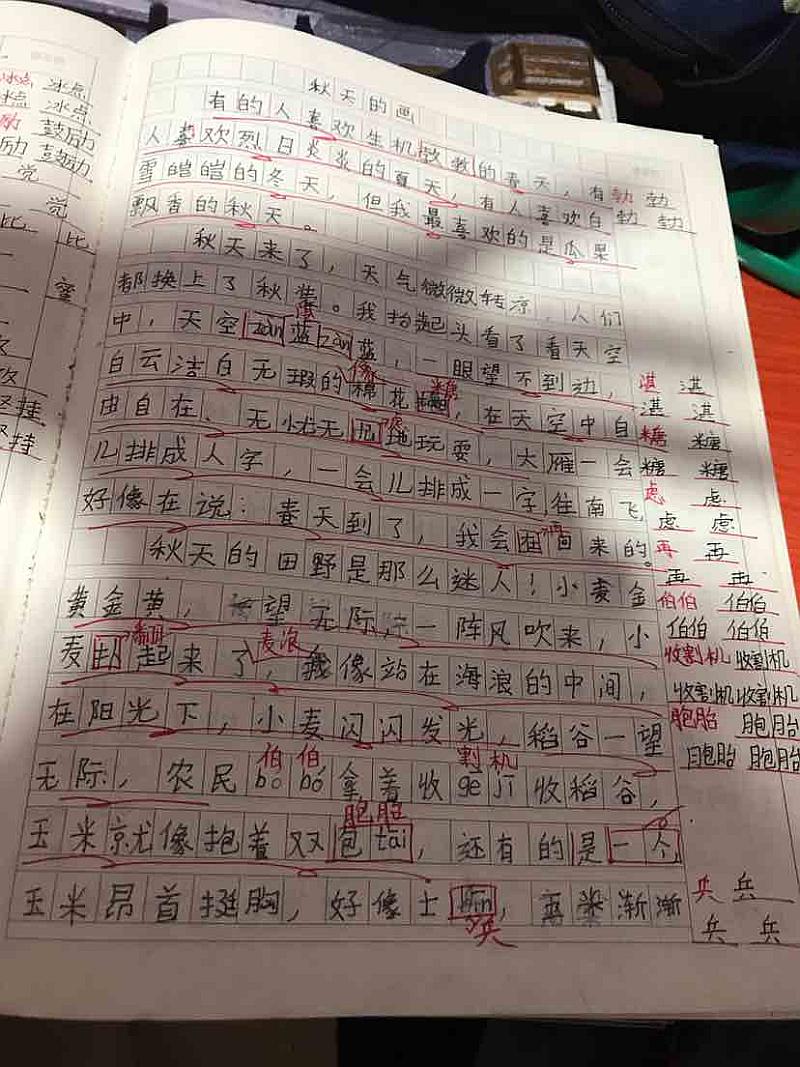 秋天的画
有的人喜欢生机勃勃的春天，有
人喜欢烈日炎炎的夏天，有人喜欢白
雪皑皑的冬天，但我最喜欢的是瓜果
飘香的秋天。
秋天来了，天气微微转凉，人们
都换上了秋装。我抬起头看了看天空
中，天空zàn蓝zàn蓝，一眼望不到边，
白云洁白无瑕的棉花糖，在天空中自
由自在、无忧无地玩耍，大雁一会
儿排成人字，一会儿排成一字往南飞
好像在说：春天到了，我会回来的。
秋天的田野是那么迷人！小麦金
黄金黄，一望无际，一阵风吹来，小
麦起来了，我像站在海浪的中间，
在阳光下，小麦闪闪发光，稻谷一望
无际，农民bó bó拿着收gē jī收稻谷，
玉米就像抱着双包tāi，还有的是一个
玉米昂首挺胸，好像士，再渐渐
像
糖
翻
麦浪
伯伯
割机
胞胎
兵
勃 勃
勃 勃
湛 湛
湛 湛
糖 糖
糖 糖
虑 虑
虑 虑
再 再
再 再
伯伯 伯伯
伯伯 伯伯
收割机 收割机
收割机 收割机
胞胎 胞胎
胞胎 胞胎
兵 兵
兵 兵
冰点 冰点
冰点
鼓励
鼓励
觉
觉
比
蜜
坚持
坚持